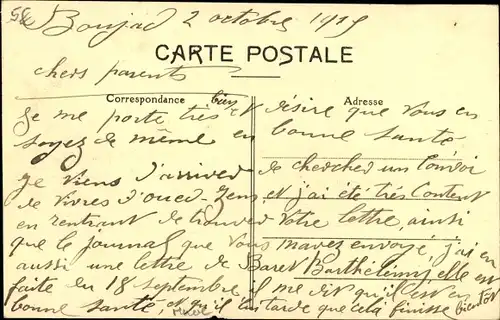 Boujad 2 octobre 1915
CARTE POSTALE
chers parents
Correspondance
Adresse
je me porte très bien et désire que vous en
soyez de même en bonne santé
je viens d'arriver de chercher un convoi
de vivres d'oued-Zem et j'ai été très content
en rentrant de trouver votre lettre, ainsi
que le journal que vous m'avez envoyé, j'ai eu
aussi une lettre de Baret Barthélemy, elle est
faite du 18 septembre il me dit qu'il est en
bonne santé, et qu'il lui tarde que cela finisse bientôt